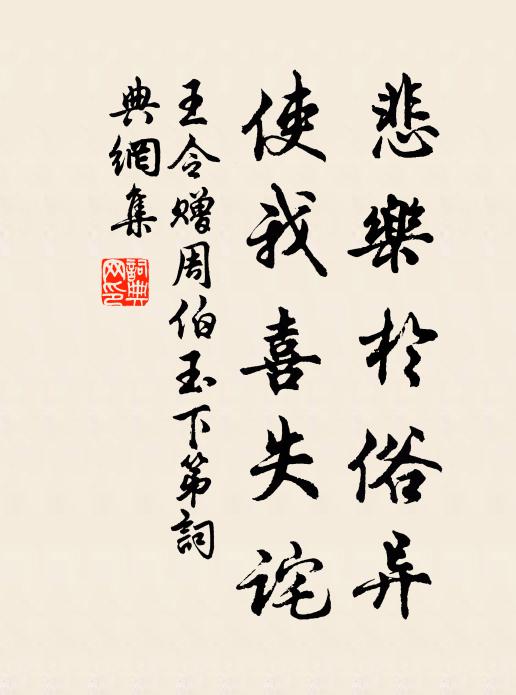 悲樂於俗异
使我喜失詫
王令贈周伯玉下第詞
典網集
詞典
网印